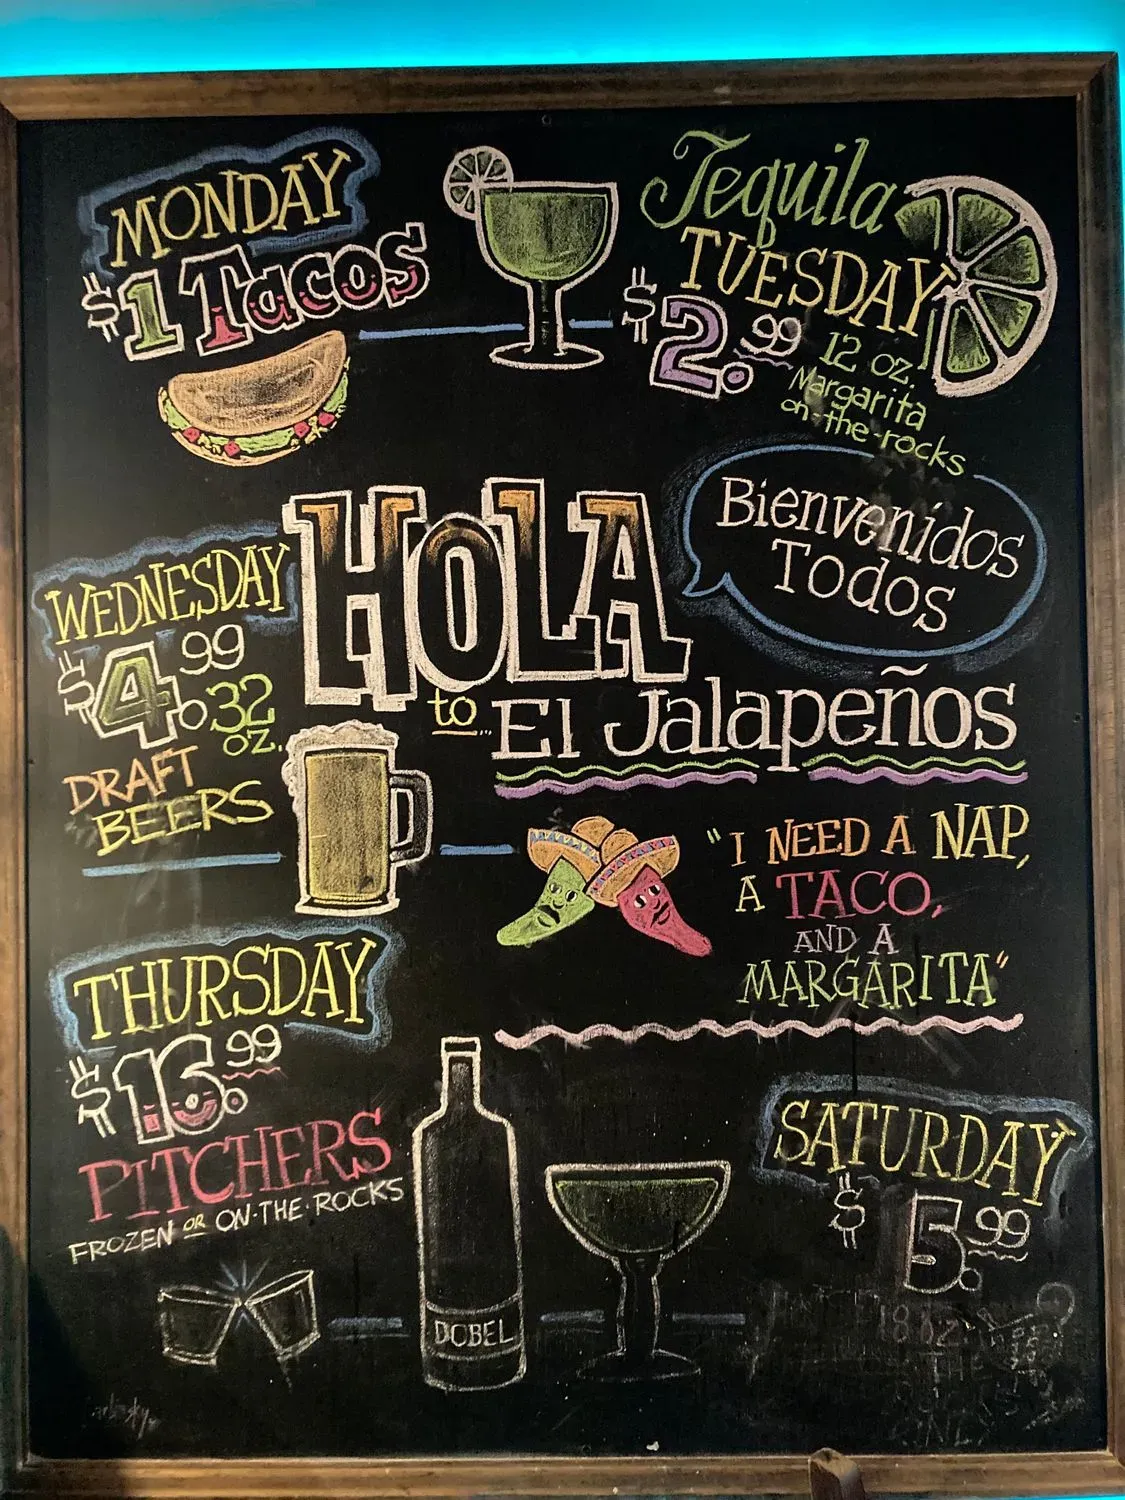 MONDAY
$1 Tacos
Tequila
TUESDAY
$2.99
12 oz.
Margarita
on-the-rocks
HOLA
Bienvenidos
Todos
to... El Jalapeños
WEDNESDAY
$4.99
32
oz.
DRAFT
BEERS
"I NEED A NAP,
A TACO,
AND A
MARGARITA"
THURSDAY
$16.99
PITCHERS
FROZEN OR ON·THE·ROCKS
DOBEL
SATURDAY
$5.99